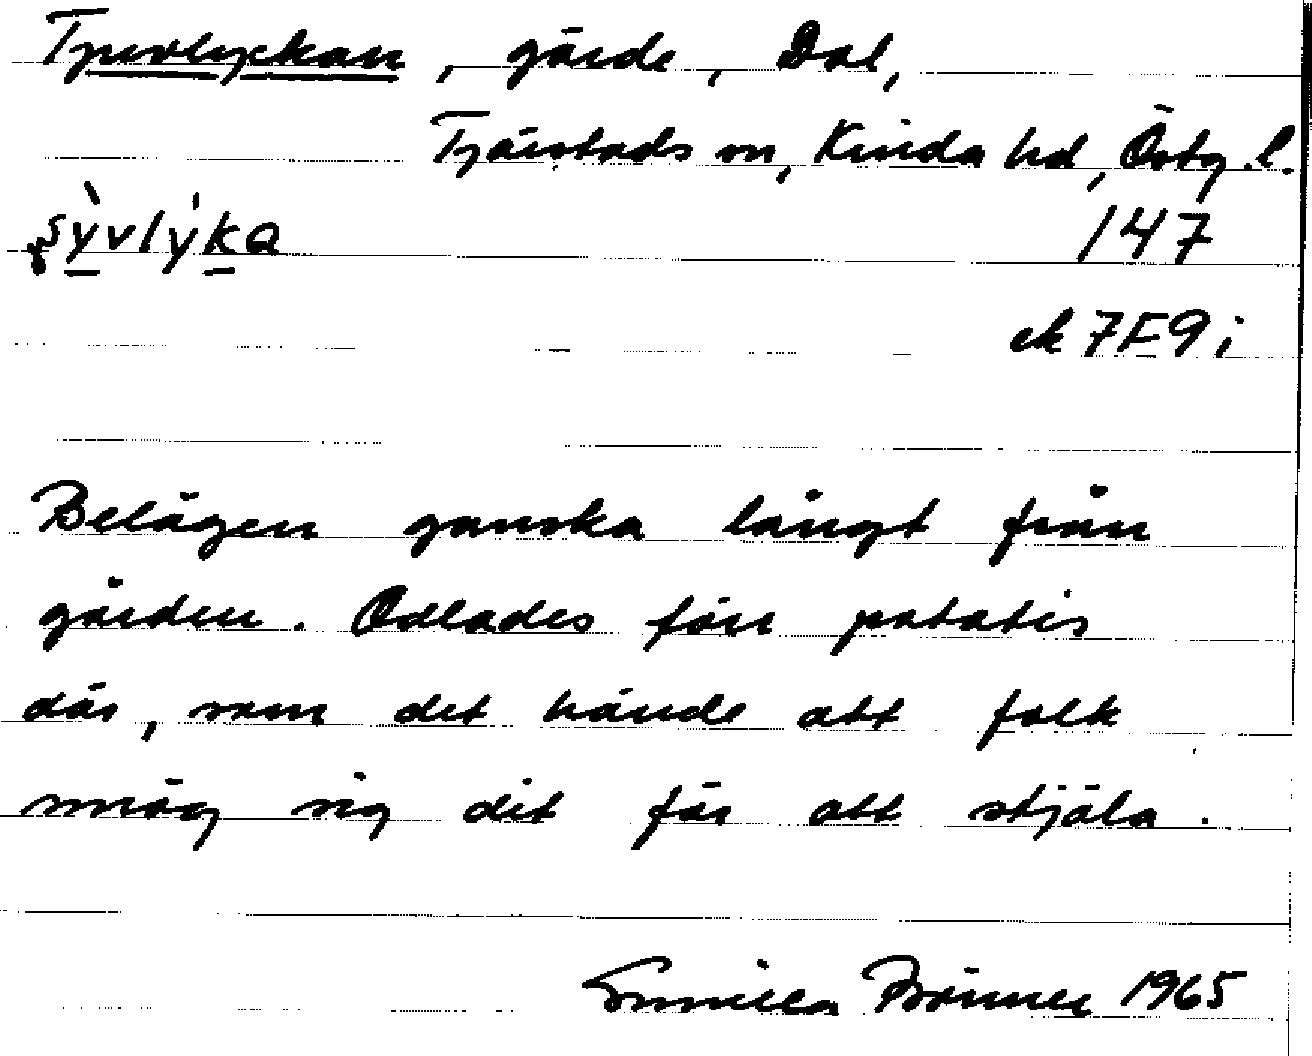 Tjuvlyckan, gärde, Dal,
Tjärstads sn, Kinda hd, Östg. l.
147
ek 7F9i
Belägen ganska långt från
gården. Odlades förr potatis
där, som det hände att folk
smög sig dit för att stjäla.
Gunilla 1965